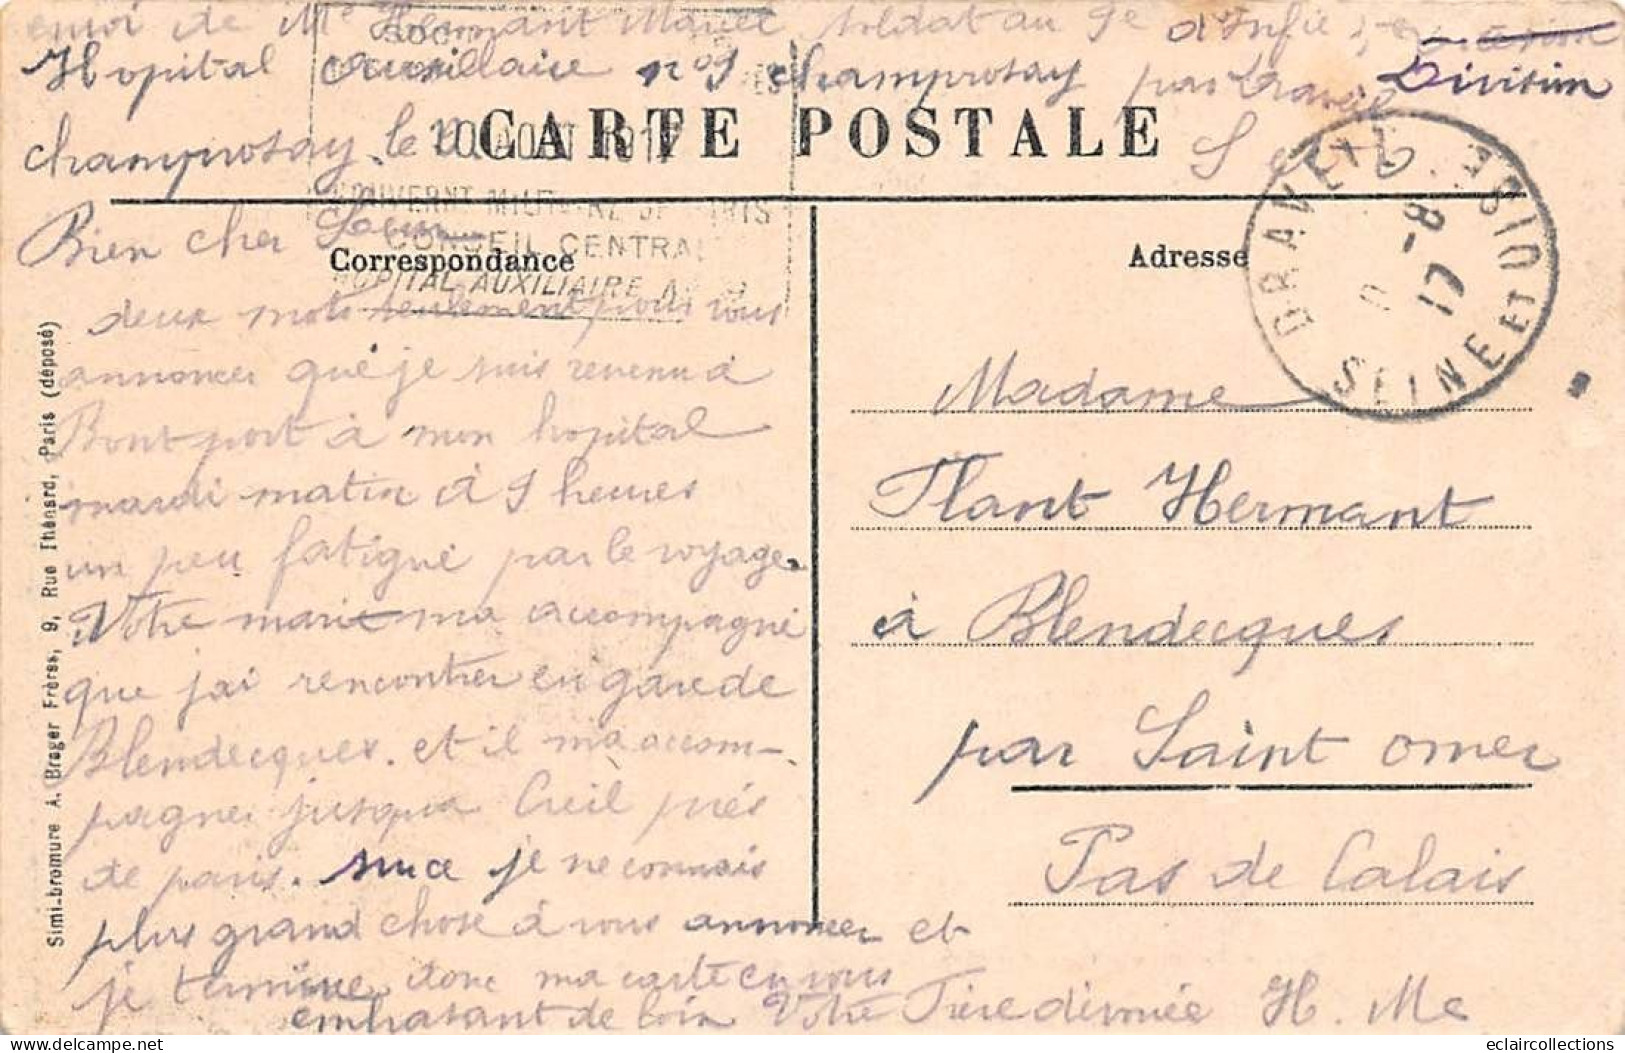 envoi de Mr Hermant Marcel soldat au 9e d'Infie
Hopital Auxillaire no 9 champrosay par Draveil Division
champrosay le
20 AOUT 1917
CARTE POSTALE
S et O
GOUVERNT MILITAIRE DE PARIS
CONSEIL CENTRAL
HOPITAL AUXILIAIRE No 9
Bien cher Sœur
Correspondance
Adresse
DRAVEIL
8-17
SEINE ET OISE
deux mots seulement pour vous
annoncer que je suis revenu à
Bont port à mon hopital
mardi matin à 9 heures
un peu fatigué par le voyage.
Votre marie ma accompagné
que j'ai rencontrer en gare de
Blendecques. et il m'a accom-
pagner jusqua Creil près
de paris. je ne connais
plus grand chose à vous annoncer et
je termine donc ma carte en vous
embrasant de loin Votre Frère dévouée H. Mc
Madame
Flant Hermant
à Blendecques
par Saint omer
Pas de Calais
Simi-bromure A. Breger Frères, 9, Rue Thénard, Paris (déposé)
eclaircollections